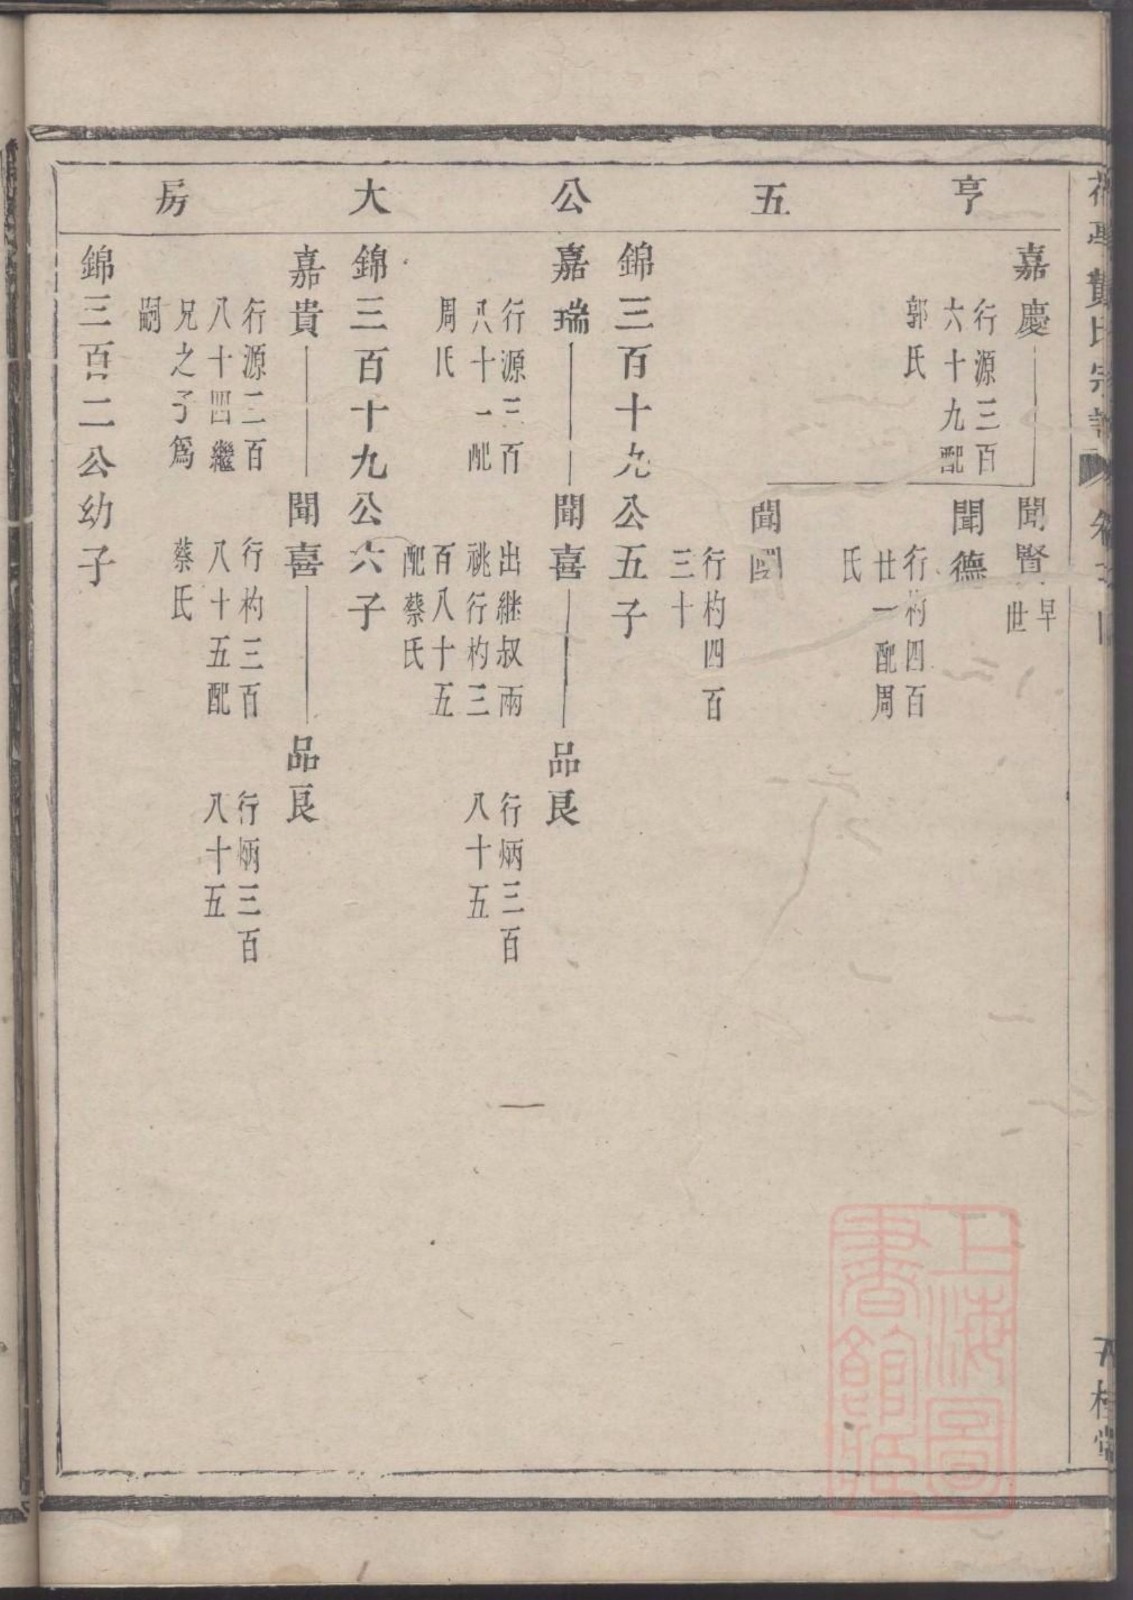 亨五公大房
嘉慶
行源三百
六十九配
郭氏
聞賢
早
世
聞德
行杓四百
廿一配周
氏
聞國
行杓四百
三十
錦三百十九公五子
嘉瑞
行源三百
八十一配
周氏
聞喜
出継叔兩
祧行杓三
百八十五
配蔡氏
品良
行炳三百
八十五
錦三百十九公六子
嘉貴
行源三百
八十四繼
兄之子爲
嗣
聞喜
行杓三百
八十五配
蔡氏
品良
行炳三百
八十五
錦三百二公幼子
上海圖
書館藏